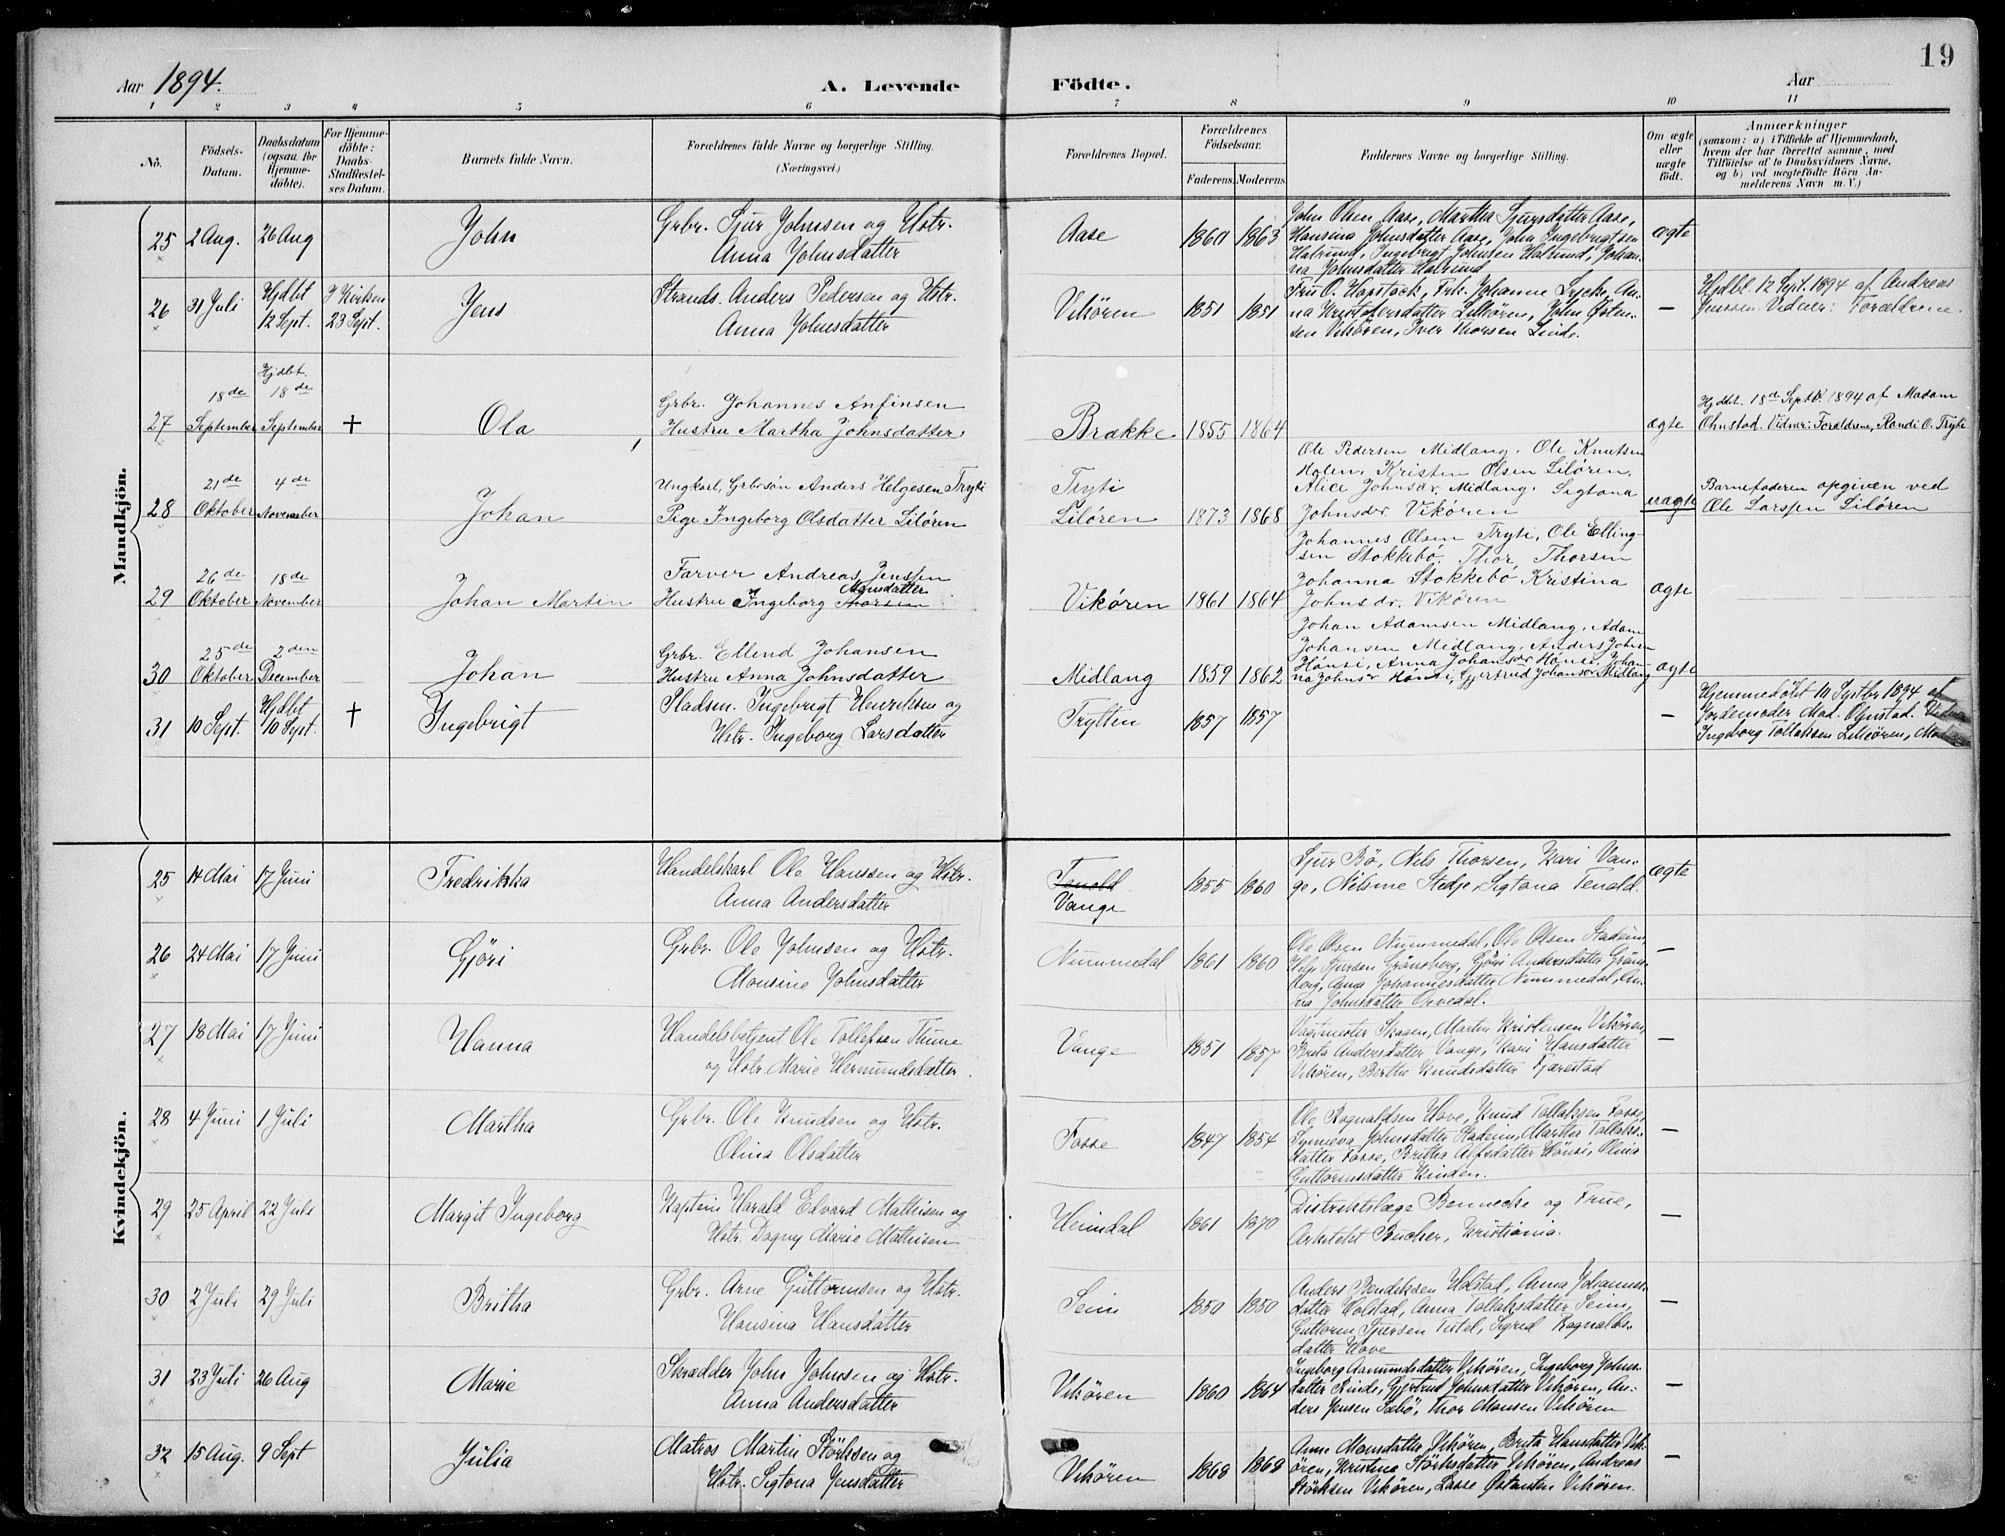 19
Aar 1894.
A. Levende Födte.
Aar
1 2 3 4 5 6 7 8 9 10 11
No.
Födsels-Datum.
Daabsdatum (ogsaa for Hjemme-döbte).
For Hjemme-döbte: Daabs-Stadfæstel-ses Datum.
Barnets fulde Navn.
Forældrenes fulde Navne og borgerlige Stilling. (Næringsvei.)
Forældrenes Bopæl.
Forældrenes Födselsaar.
Faderens. Moderens.
Faddernes Navne og borgerlige Stilling.
Om ægte eller uægte födt.
Anmærkninger
(saasom: a) i Tilfælde af Hjemmedaab,
hvem der har forrettet samme, med
Tilföielse af to Daabsvidners Navne.
og b) ved uægtefödte Börn An-
melderens Navn m. V.)
Mandkjön.
25 2 Aug. 26 Aug John
Grbr. Sjur Johnsen og Hstr.
Anna Johnsdatter
Aase 1860 1863
John Olsen Aase, Martha Sjursdatter Aase,
Hansina Johnsdatter Aase, John Ingebrigtsen
Halrind, Ingebrigt Johnsen Halrind, Johan-
na Johnsdatter Halrind
ægte
26 31 Juli Hjdbt 12 Sept. I Kirken 23 Sept. Jens
Strands. Anders Pedersen og Hstr.
Anna Johnsdatter
Vikören 1851 1851
Fru O. Hopstock, Frk. Johanne Lycke, An-
na Kristofersdatter Lilören, John Östen-
sen Vikören, Iver Thorsen Linde.
—
Hjdbt 12 Sept. 1894 af Andreas
Jenssen. Vidner: Forældrene.
27 18de September Hjdbt. 18de September † Ola
Grbr. Johannes Anfinsen
Hustru Martha Johnsdatter
Brække 1855 1864
ægte
Hjdbt. 18de Septbr 1894 af Madam
Ohnstad. Vidner: Forældrene, Randi O. Tryti
28 21de Oktober 4de November Johan
Ungkarl, Grbrsön Anders Helgesen Tryti
Pige Ingeborg Olsdatter Lilören
Tryti
Lilören 1873 1868
Ole Pedersen Midlang, Ole Knutsen
Holen, Kristen Olsen Lilören,
Alice Johnsdr. Midlang, Sigtona
Johnsdr Vikören
uægte
Barnefaderen opgiven ved
Ole Larssen Lilören
29 26de Oktober 18de November Johan Martin
Farver Andreas Jenssen
Hustru Ingeborg Monsdatter
Vikören 1861 1864
Johannes Olsen Tryti, Ole Elling-
sen Stokkebö, Thor Thorsen
Johanna Stokkebö Kristina
Johnsdr. Vikören
ægte
30 25de Oktober 2den December Johan
Grbr. Ellend Johansen
Hustru Anna Johnsdatter
Midlang 1859 1862
Johan Adamsen Midlang, Adam
Johansen Midlang, Anders Johnsen
Hönsi, Anna Johansdr Hönsi, Johan-
na Johnsdr Hönsi, Gjertrud Johansdr Midlang
ægte
31 10 Sept. Hjdbt 10 Sept. † Ingebrigt
Pladsm. Ingebrigt Henriksen og
Hstr. Ingeborg Larsdatter
Trytten 1857 1857
—
Hjemmedöbt 10 Septbr 1894 af
Jordemoder Mad. Ohnstad. Vidner
Ingeborg Tollaksen Lilören,
Kvindekjön.
25 14 Mai 17 Juni Fredrikka
Handelskarl Ole Hanssen og Hstr.
Anna Andersdatter
Tenold
Vange 1855 1860
Sjur Bö, Nils Thorsen, Kari Van-
ge, Nilsine Stedje, Sigtona Tenold.
ægte
26 24 Mai 17 Juni Gjöri
Grbr. Ole Johnsen og Hstr.
Monsine Johnsdatter
Nummedal 1861 1860
Ole Olsen Nummedal, Ole Olsen Stadeim,
Helje Sjursen Grönsberg, Gjöri Andersdatter Gröns-
berg, Anna Johannesdatter Nummedal, An-
na Johnsdatter Orvedal.
—
27 18 Mai 17 Juni Hanna
Handelsbetjent Ole Tollefsen Thune
og Hstr. Marie Hermundsdatter.
Vange 1851 1857
Vagtmester Skagen, Martin Kristensen Vikören,
Brita Andersdatter Vange, Kari Hansdatter
Vikören, Berthe Knudsdatter Fjærestad
—
28 4 Juni 1 Juli Martha
Grbr. Ole Knudsen og Hstr.
Olina Olsdatter
Fosse 1847 1854
Ole Rognaldsen Hove, Knud Tollaksen Fosse,
Synneva Johnsdatter Stadeim, Martha Tollaks-
datter Fosse, Britha Alfsdatter Hönsi, Olina
Guttormsdatter Rinden.
—
29 25 April 22 Juli Margit Ingeborg
Kaptein Harald Edvard Mathisen og
Hstr. Dagny Marie Mathisen
Heimdal 1861 1870
Distriktslæge Bennecke og Frue,
Arkitekt Bucher, Kristiania.
—
30 2 Juli 29 Juli Britha
Grbr. Arne Guttormsen og Hstr.
Hansina Hansdatter
Seim 1850 1850
Anders Bendiksen Holstad, Anna Johannes-
datter Holstad, Anna Tollaksdatter Seim,
Guttorm Sjursen Tistel, Sigrid Rognalds-
datter Hove
—
31 23 Juli 26 Aug Marie
Skrædder John Johnsen og Hstr.
Anna Andersdatter
Vikören 1860 1864
Ingeborg Aamundsdatter Vikören, Ingeborg Johns-
datter Rinde, Gjertrud Johnsdatter Vikören, An-
ders Jensen Sæbö, Thor Monsen Vikören
—
32 15 Aug. 9 Sept Julia
Matros Martin Störksen og
Hstr. Sigtona Jensdatter
Vikören 1868 1868
Anne Monsdatter Vikören, Brita Hansdatter Vik-
ören, Kristina Störksdatter Vikören, Andreas
Störksen Vikören, Lasse Östensen Vikören.
—